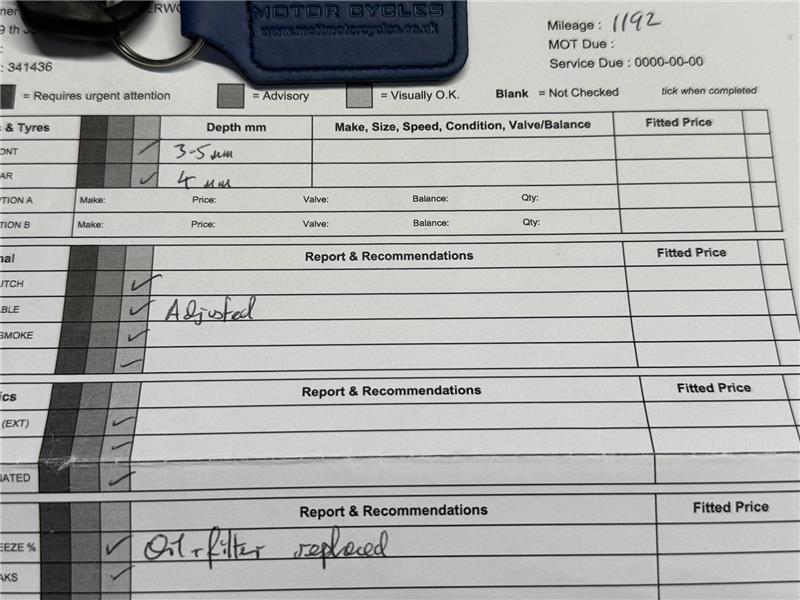 MOTOR CYCLES
www.motmotorcycles.co.uk
Mileage : 1192
MOT Due :
: 341436
Service Due : 0000-00-00
= Requires urgent attention = Advisory = Visually O.K. Blank = Not Checked tick when completed
& Tyres Depth mm Make, Size, Speed, Condition, Valve/Balance Fitted Price
ONT 3-5mm
AR 4 mm
TION A Make: Price: Valve: Balance: Qty:
TION B Make: Price: Valve: Balance: Qty:
nal Report & Recommendations Fitted Price
UTCH
ABLE Adjusted
SMOKE
ics Report & Recommendations Fitted Price
(EXT)
NATED
Report & Recommendations Fitted Price
EEZE % Oil + filter replaced
AKS